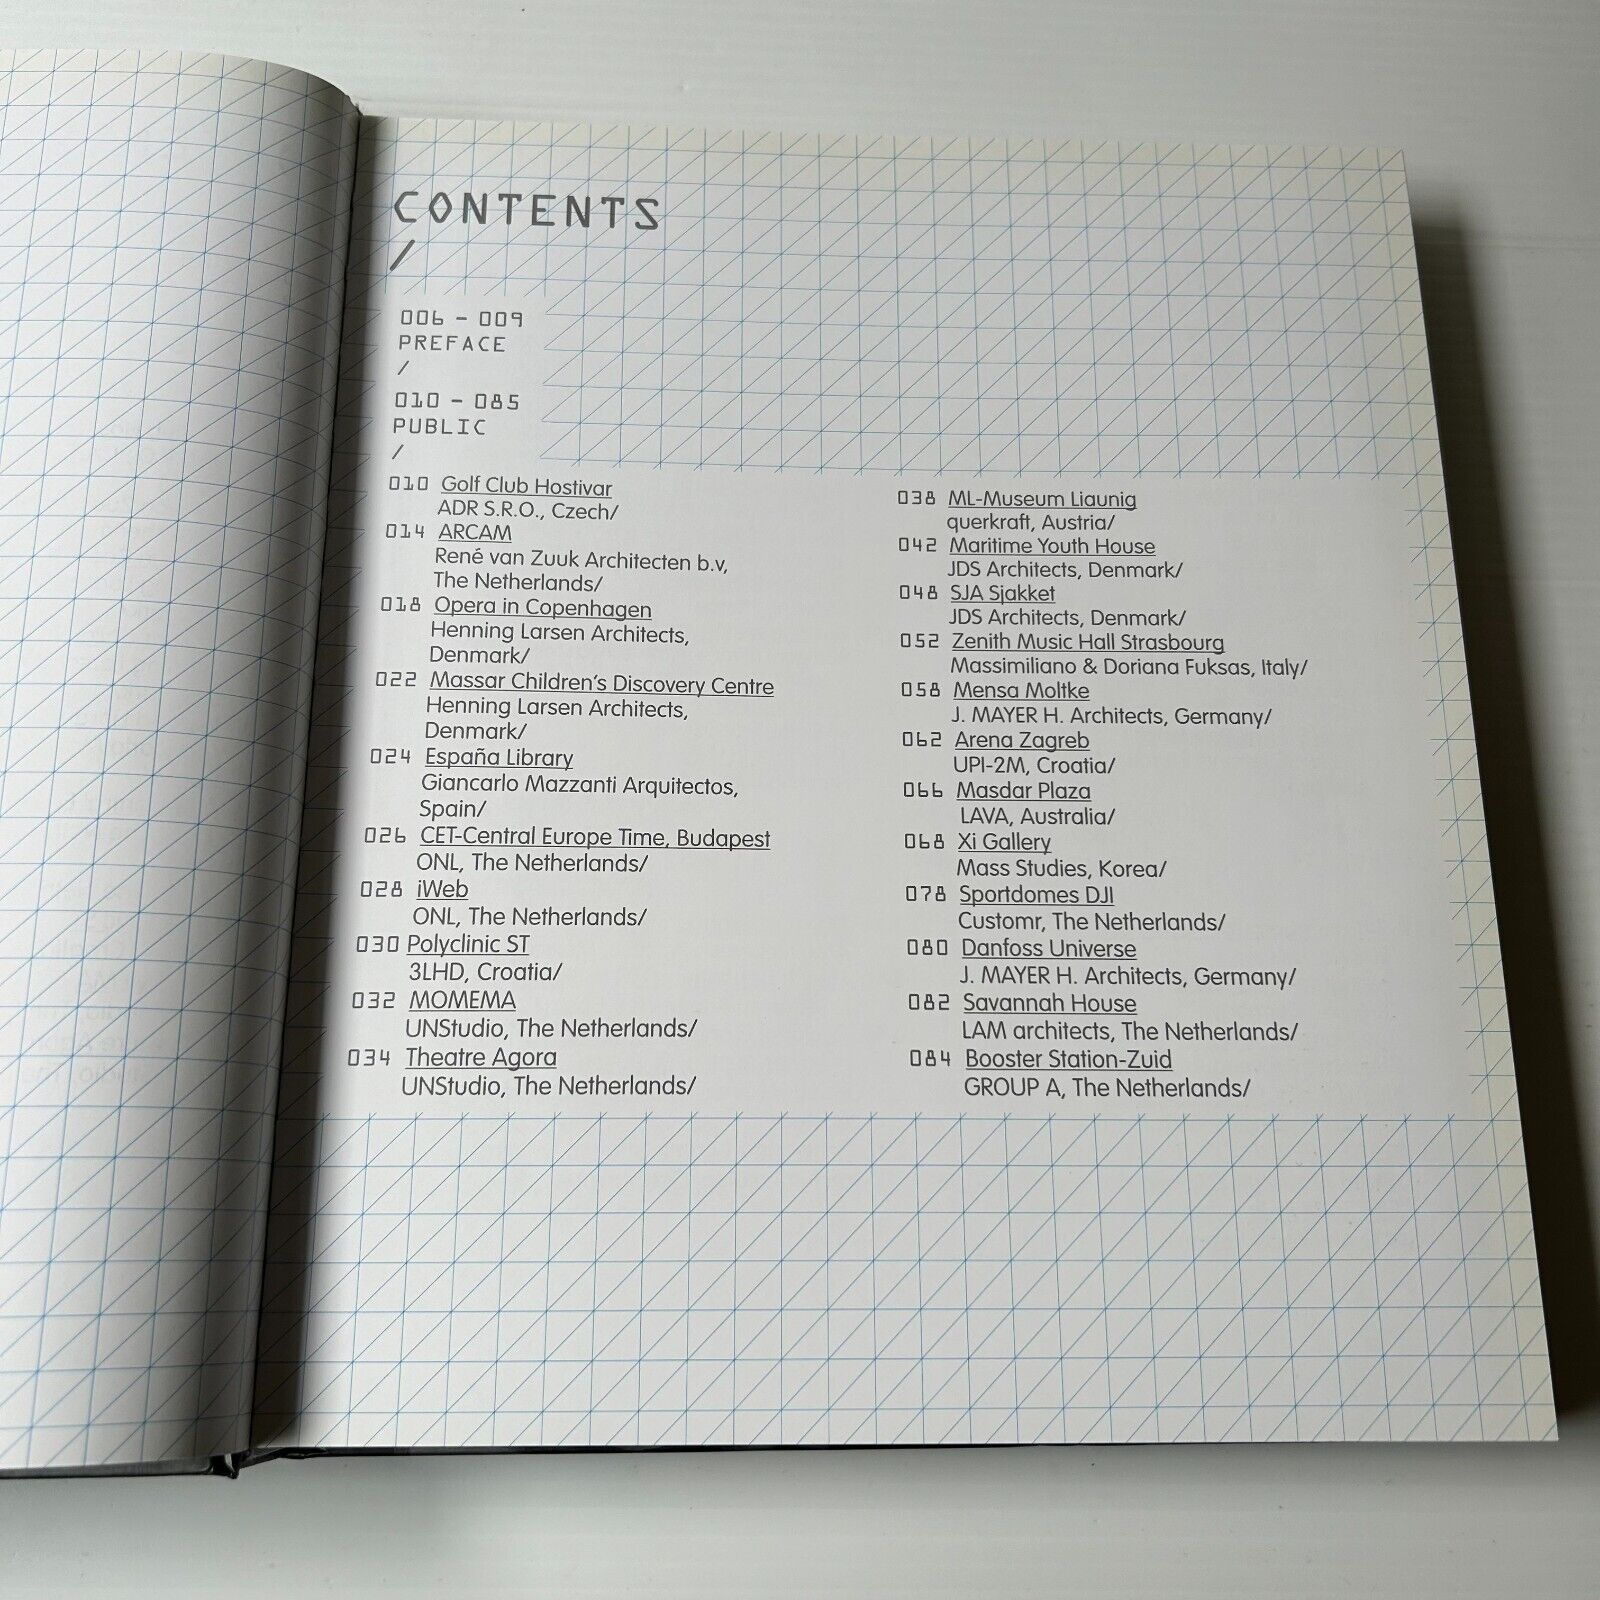 CONTENTS
/
006 - 009
PREFACE
/
010 - 085
PUBLIC
/
010 Golf Club Hostivar
ADR S.R.O., Czech/
014 ARCAM
René van Zuuk Architecten b.v,
The Netherlands/
018 Opera in Copenhagen
Henning Larsen Architects,
Denmark/
022 Massar Children's Discovery Centre
Henning Larsen Architects,
Denmark/
024 España Library
Giancarlo Mazzanti Arquitectos,
Spain/
026 CET-Central Europe Time, Budapest
ONL, The Netherlands/
028 iWeb
ONL, The Netherlands/
030 Polyclinic ST
3LHD, Croatia/
032 MOMEMA
UNStudio, The Netherlands/
034 Theatre Agora
UNStudio, The Netherlands/
038 ML-Museum Liaunig
querkraft, Austria/
042 Maritime Youth House
JDS Architects, Denmark/
048 SJA Sjakket
JDS Architects, Denmark/
052 Zenith Music Hall Strasbourg
Massimiliano & Doriana Fuksas, Italy/
058 Mensa Moltke
J. MAYER H. Architects, Germany/
062 Arena Zagreb
UPI-2M, Croatia/
066 Masdar Plaza
LAVA, Australia/
068 Xi Gallery
Mass Studies, Korea/
078 Sportdomes DJI
Customr, The Netherlands/
080 Danfoss Universe
J. MAYER H. Architects, Germany/
082 Savannah House
LAM architects, The Netherlands/
084 Booster Station-Zuid
GROUP A, The Netherlands/